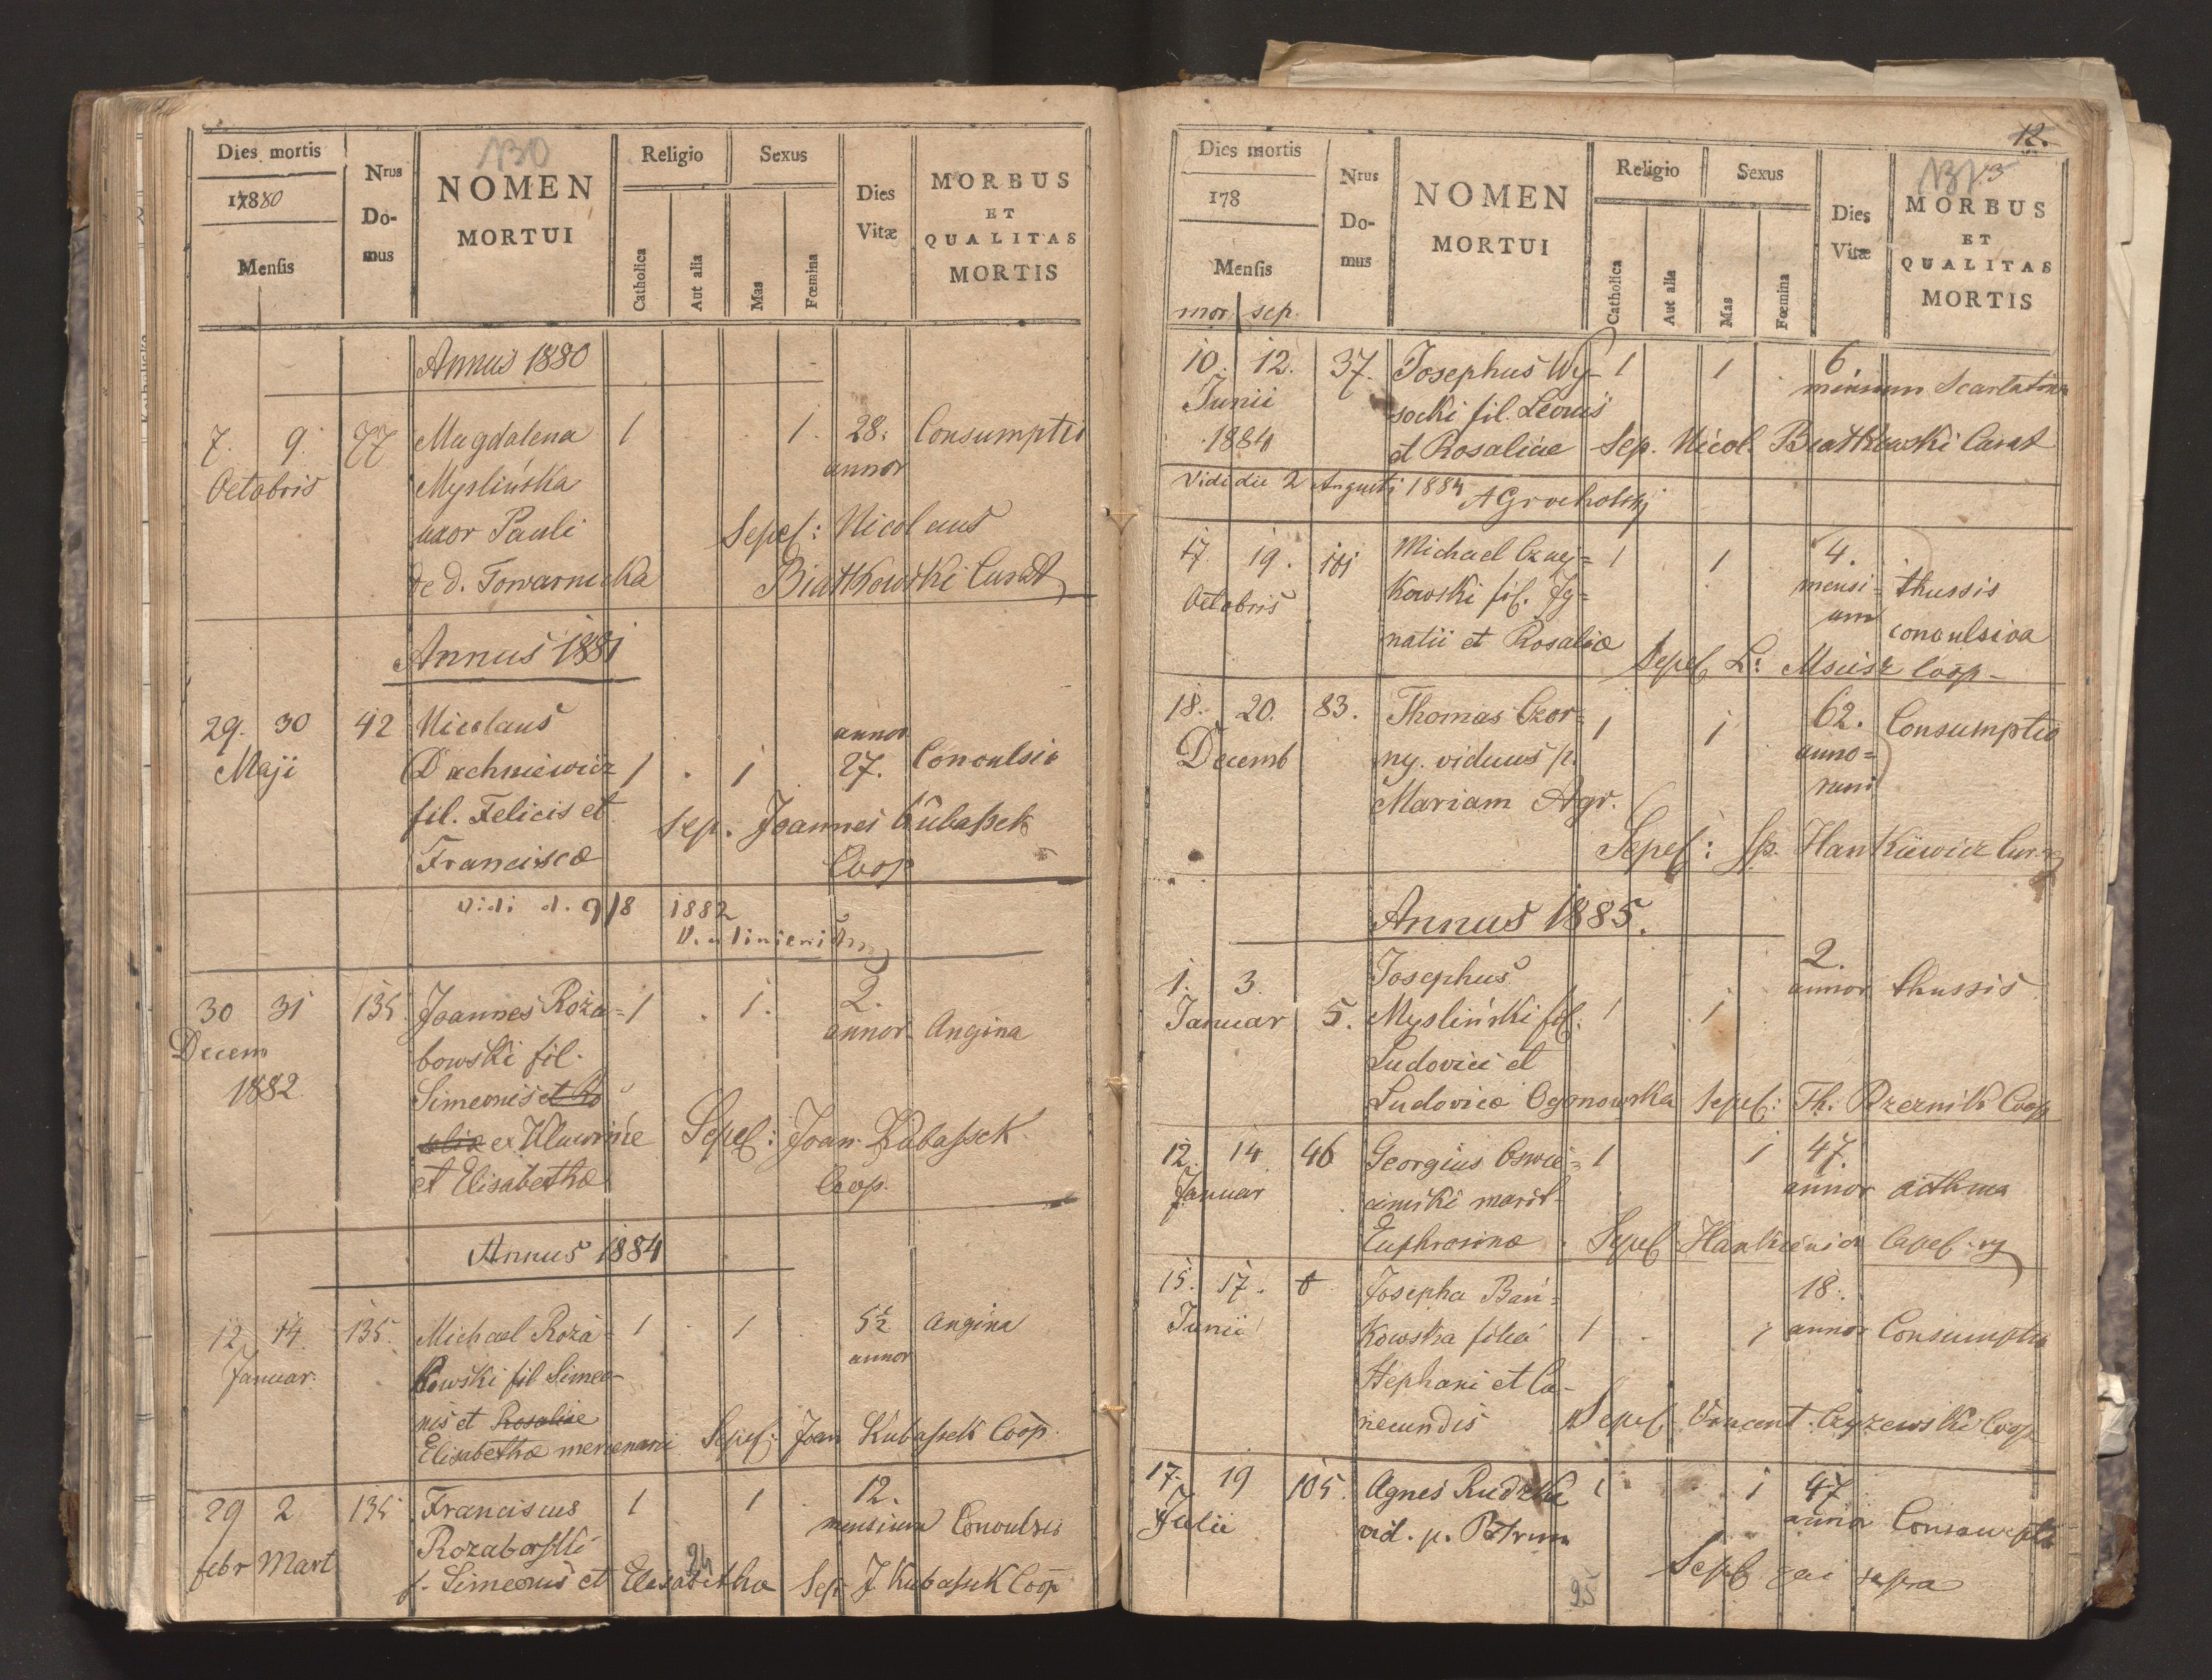 130
Dies mortis
Nrus Do- mus
NOMEN MORTUI
Religio
Sexus
Dies Vitæ
MORBUS ET QUALITAS MORTIS
1880
Mensis
Catholica
Aut alia
Mas
Fœmina
Annus 1880
7. 9. 77 Magdalena 1 1. 28. Consumptio
Octobris Myslińska annor
uxor Pauli Sepel: Nicolaus
de d. Towarnicka Białkowski Curat
Annus 1881
29. 30 42 Nicolaus annor
Maji Dachniewicz 1 1 27. Convulsio
fil. Felicis et Sep. Joannes Kubaſsek
Franciscæ Coop
vidi d. 9/8 1882
30 31 135. Joannes Roża= 1 1. 2.
Decem bowski fil. annor Angina
1882. Simeonis et Ro
salia ex
et Elisabethæ Sepel: Joan Kubaſsek
Coop.
Annus 1884
12 14. 135. Michael Roża= 1 1 5½ Angina
Januar. bowski fil Simeo- annor
nis et Rosaliae
Elisabethæ mercenarii Sepel: Joan Kubaſsek Coop.
29 2 135 Franciscus 1 1 12.
Rozaborski mensium Convulsio
febr Mart f. Simeonis et Elisabethæ Sep J Kubaſsek Coop
24
12.
131
13
Dies mortis
Nrus Do- mus
NOMEN MORTUI
Religio
Sexus
Dies Vitæ
MORBUS ET QUALITAS MORTIS
178
Mensis
Catholica
Aut alia
Mas
Fœmina
mor sep.
10. 12. 37. Josephus Wy- 1 1 6
Junii socki fil. Leonis mensium Scarlatina
1884 et Rosaliae Sep. Nicol. Białkowski Curat
Vidi die 2 Augusti 1884 AGrocholski
17. 19. 111 Michael Czaj= 1 1 4.
Octobris kowski fil. Jg= mensi= thussis
natii et Rosaliæ um convulsiva
Sepel L: Msisz Coop-
18. 20. 83. Thomas Czor= 1 1 62. Consumptio
Decemb ny. viduus p. anno=
Mariam Agr. rum
Sepel: Hankiewicz
Annus 1885.
1. 3. Josephus 2.
Januar 5. Mysliński fil: 1 1 annor thussis
Ludovici et
Ludovicæ Ogonowska Sepel: Th. Rzeznik Coop
12. 14. 46 Georgius Oswie= 1 1 47.
Januar cimski marit annor asthma
Euphrosinæ Sepel Hankiewicz
15. 17. 8 Josepha Bań= 18.
Junii kowska filia 1 1 annor Consumptio
Stephani et Ca-
necundis Sepel Vincent. Czyzewski Coop
17. 19 105. Agnes Rudzka 1 1 47
Julii vid. p. Petrum annor Consumptio
Sepel qui supra
25